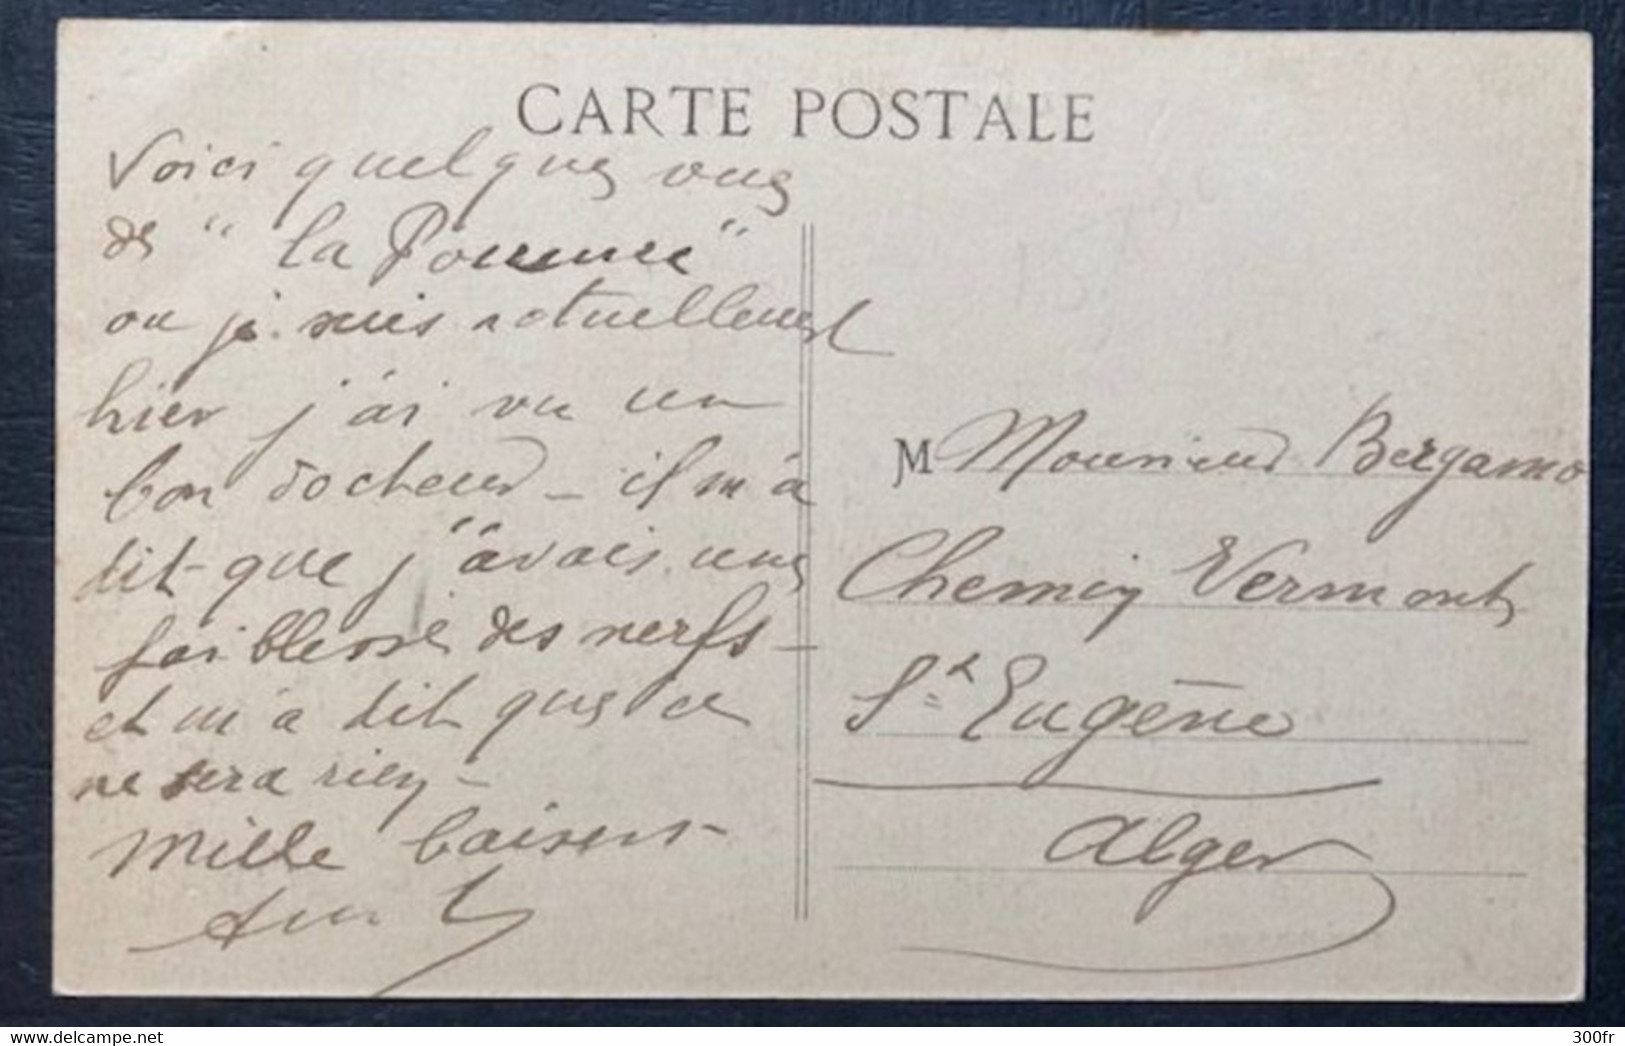 CARTE POSTALE
Voici quelques vues
de "la Pomme"
ou je suis actuellement
hier j'ai vu un
bon docteur – il m'a
dit que j'avais une
faiblesse des nerfs –
et m'a dit que ce
ne sera rien –
Mille baisers –
M Monsieur Bergamo
Chemin Vermont
St Eugène
Alger
300fr